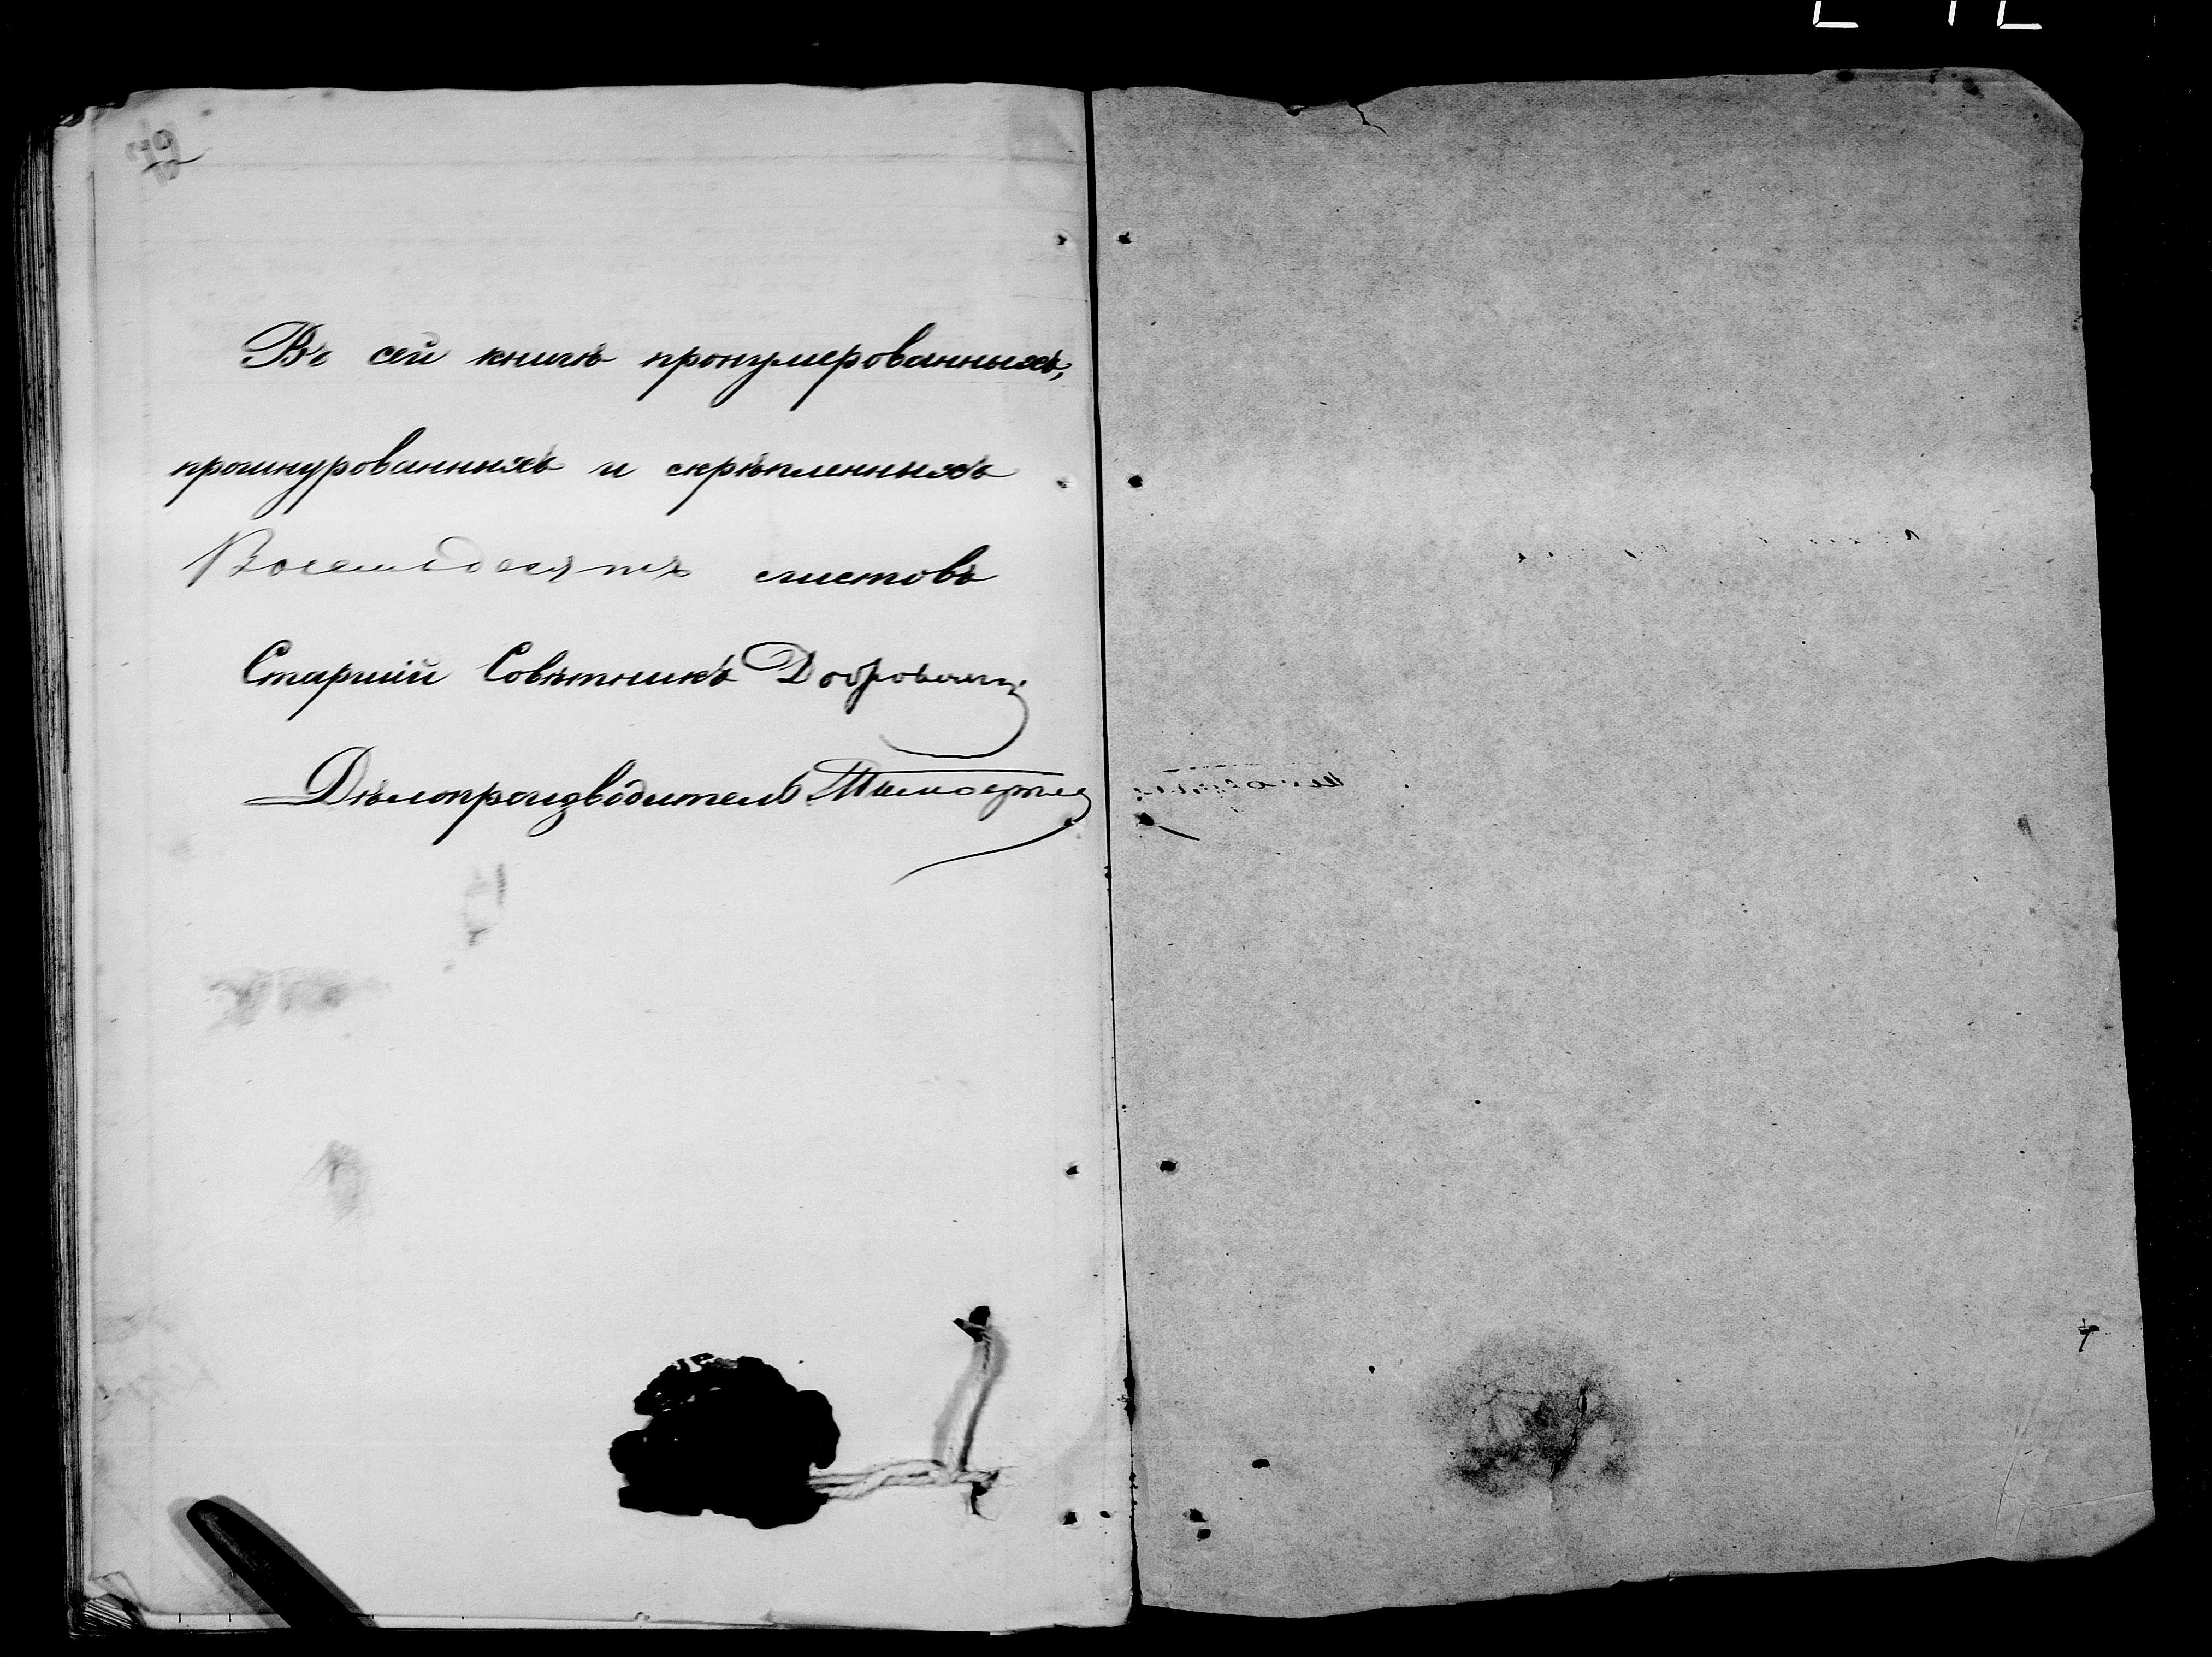 Въ сей книгѣ пронумерованныхъ,
прошнурованныхъ и скрѣпленныхъ
Восемьдесятъ листовъ
Старшій Совѣтникъ
Дѣлопроизводитель